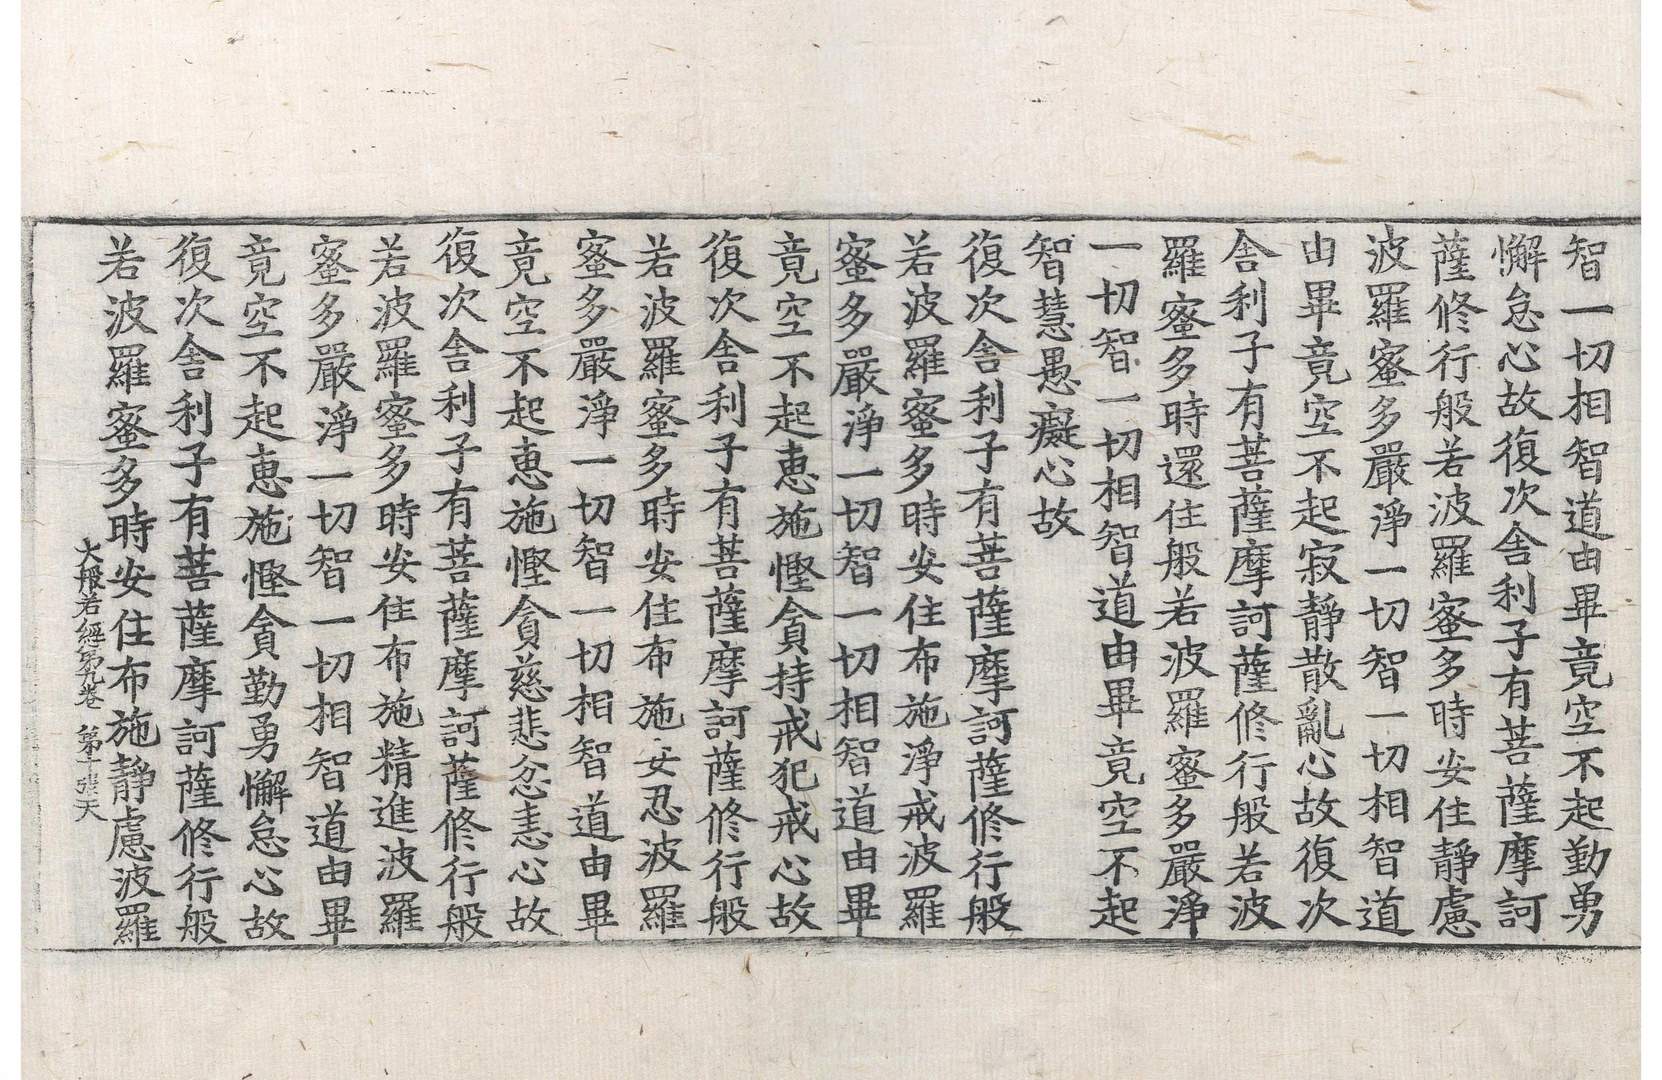 智一切相智道由畢竟空不起勤勇
懈怠心故復次舍利子有菩薩摩訶
薩修行般若波羅蜜多時安住靜慮
波羅蜜多嚴淨一切智一切相智道
由畢竟空不起寂靜散亂心故復次
舍利子有菩薩摩訶薩修行般若波
羅蜜多時還住般若波羅蜜多嚴淨
一切智一切相智道由畢竟空不起
智慧愚癡心故
復次舍利子有菩薩摩訶薩修行般
若波羅蜜多時安住布施淨戒波羅
蜜多嚴淨一切智一切相智道由畢
竟空不起惠施慳貪持戒犯戒心故
復次舍利子有菩薩摩訶薩修行般
若波羅蜜多時安住布施安忍波羅
蜜多嚴淨一切智一切相智道由畢
竟空不起惠施慳貪慈悲忿恚心故
復次舍利子有菩薩摩訶薩修行般
若波羅蜜多時安住布施精進波羅
蜜多嚴淨一切智一切相智道由畢
竟空不起惠施慳貪勤勇懈怠心故
復次舍利子有菩薩摩訶薩修行般
若波羅蜜多時安住布施靜慮波羅
大般若經第九卷 第十張 天